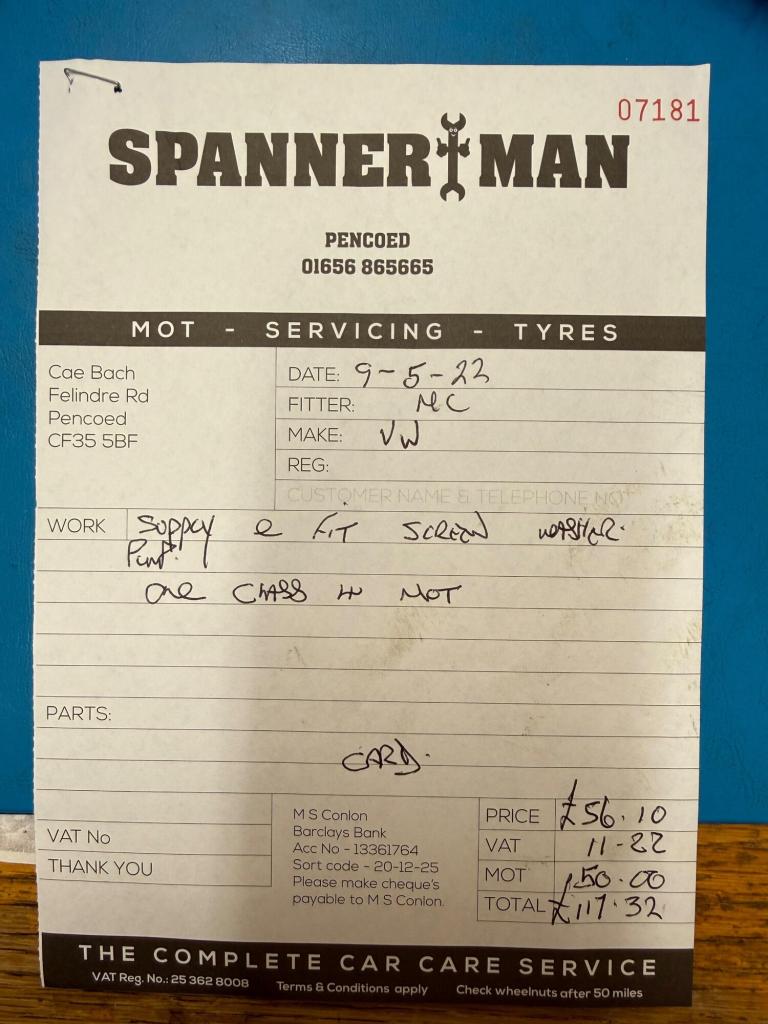 07181
SPANNER MAN
PENCOED
01656 865665
MOT - SERVICING - TYRES
Cae Bach
Felindre Rd
Pencoed
CF35 5BF
DATE: 9-5-22
FITTER: MC
MAKE: VW
REG:
CUSTOMER NAME & TELEPHONE NO
WORK Supply & FIT SCREEN WASHER.
Pump.
One CLASS IV MOT
PARTS:
CARD.
VAT No
THANK YOU
M S Conlon
Barclays Bank
Acc No - 13361764
Sort code - 20-12-25
Please make cheque's
payable to M S Conlon.
PRICE £56.10
VAT 11-22
MOT £50.00
TOTAL £117.32
THE COMPLETE CAR CARE SERVICE
VAT Reg. No.: 25 362 8008 Terms & Conditions apply Check wheelnuts after 50 miles